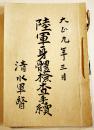 大正九年三月
陸軍身體檢査手續
清水軍醫